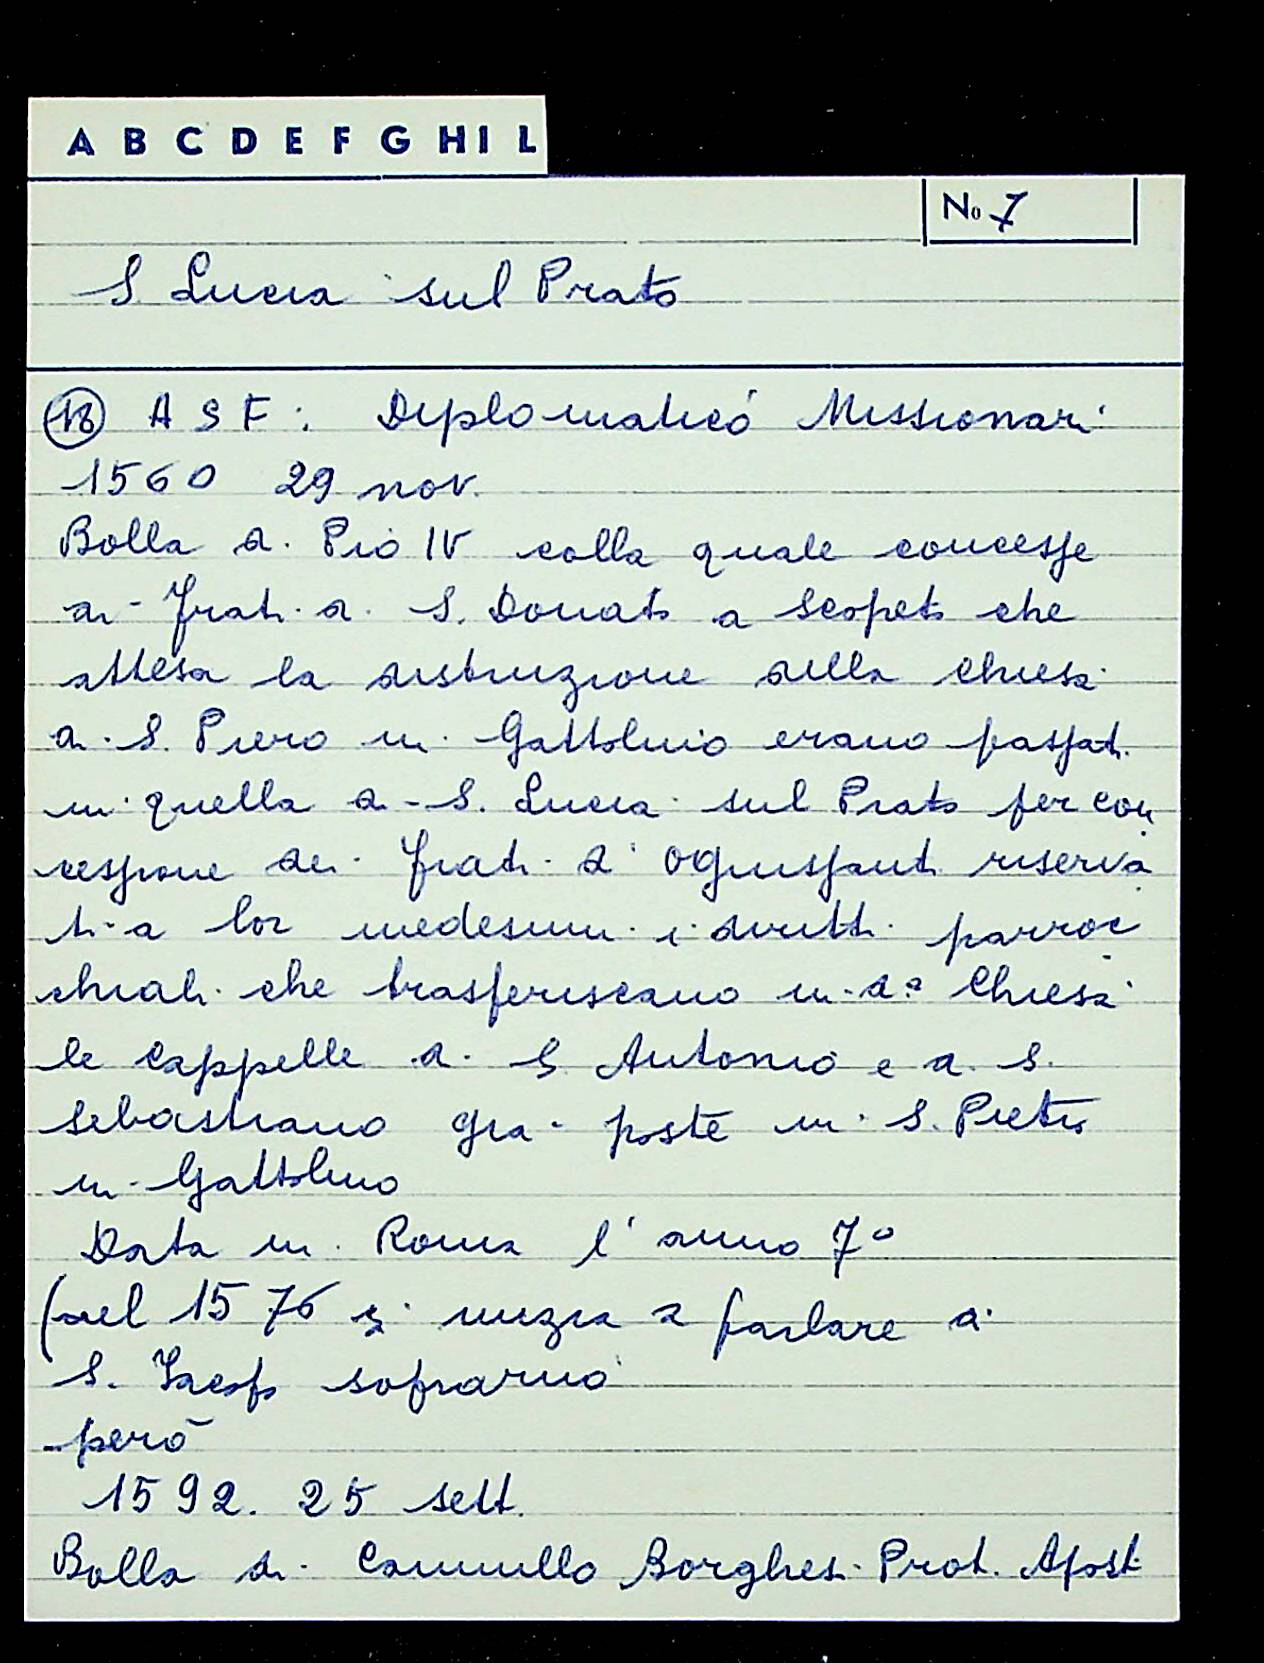 A B C D E F G H I L
No 7
S. Lucia sul Prato
18 A S F : Diplomatico Missionari
1560 29 nov.
Bolla di Pio IV colla quale concesse
ai frati di S. Donato a Scopeto che
attesa la distruzione della chiesa
di S. Piero in Gattolino erano passati
in quella di S. Lucia sul Prato per con
cessione dei frati d'Ognissanti riserva
ti a lor medesimi i diritti parroc
chiali che trasferiscano in da Chiesa
le cappelle di S. Antonio e di S.
Sebastiano gia poste in S. Pietro
in Gattolino
Data in Roma l'anno 7º
(nel 1576 si inizia a parlare di
S. Jacopo soprarno
però
1592. 25 sett.
Bolla di Cammillo Borghesi Prot. Apost.